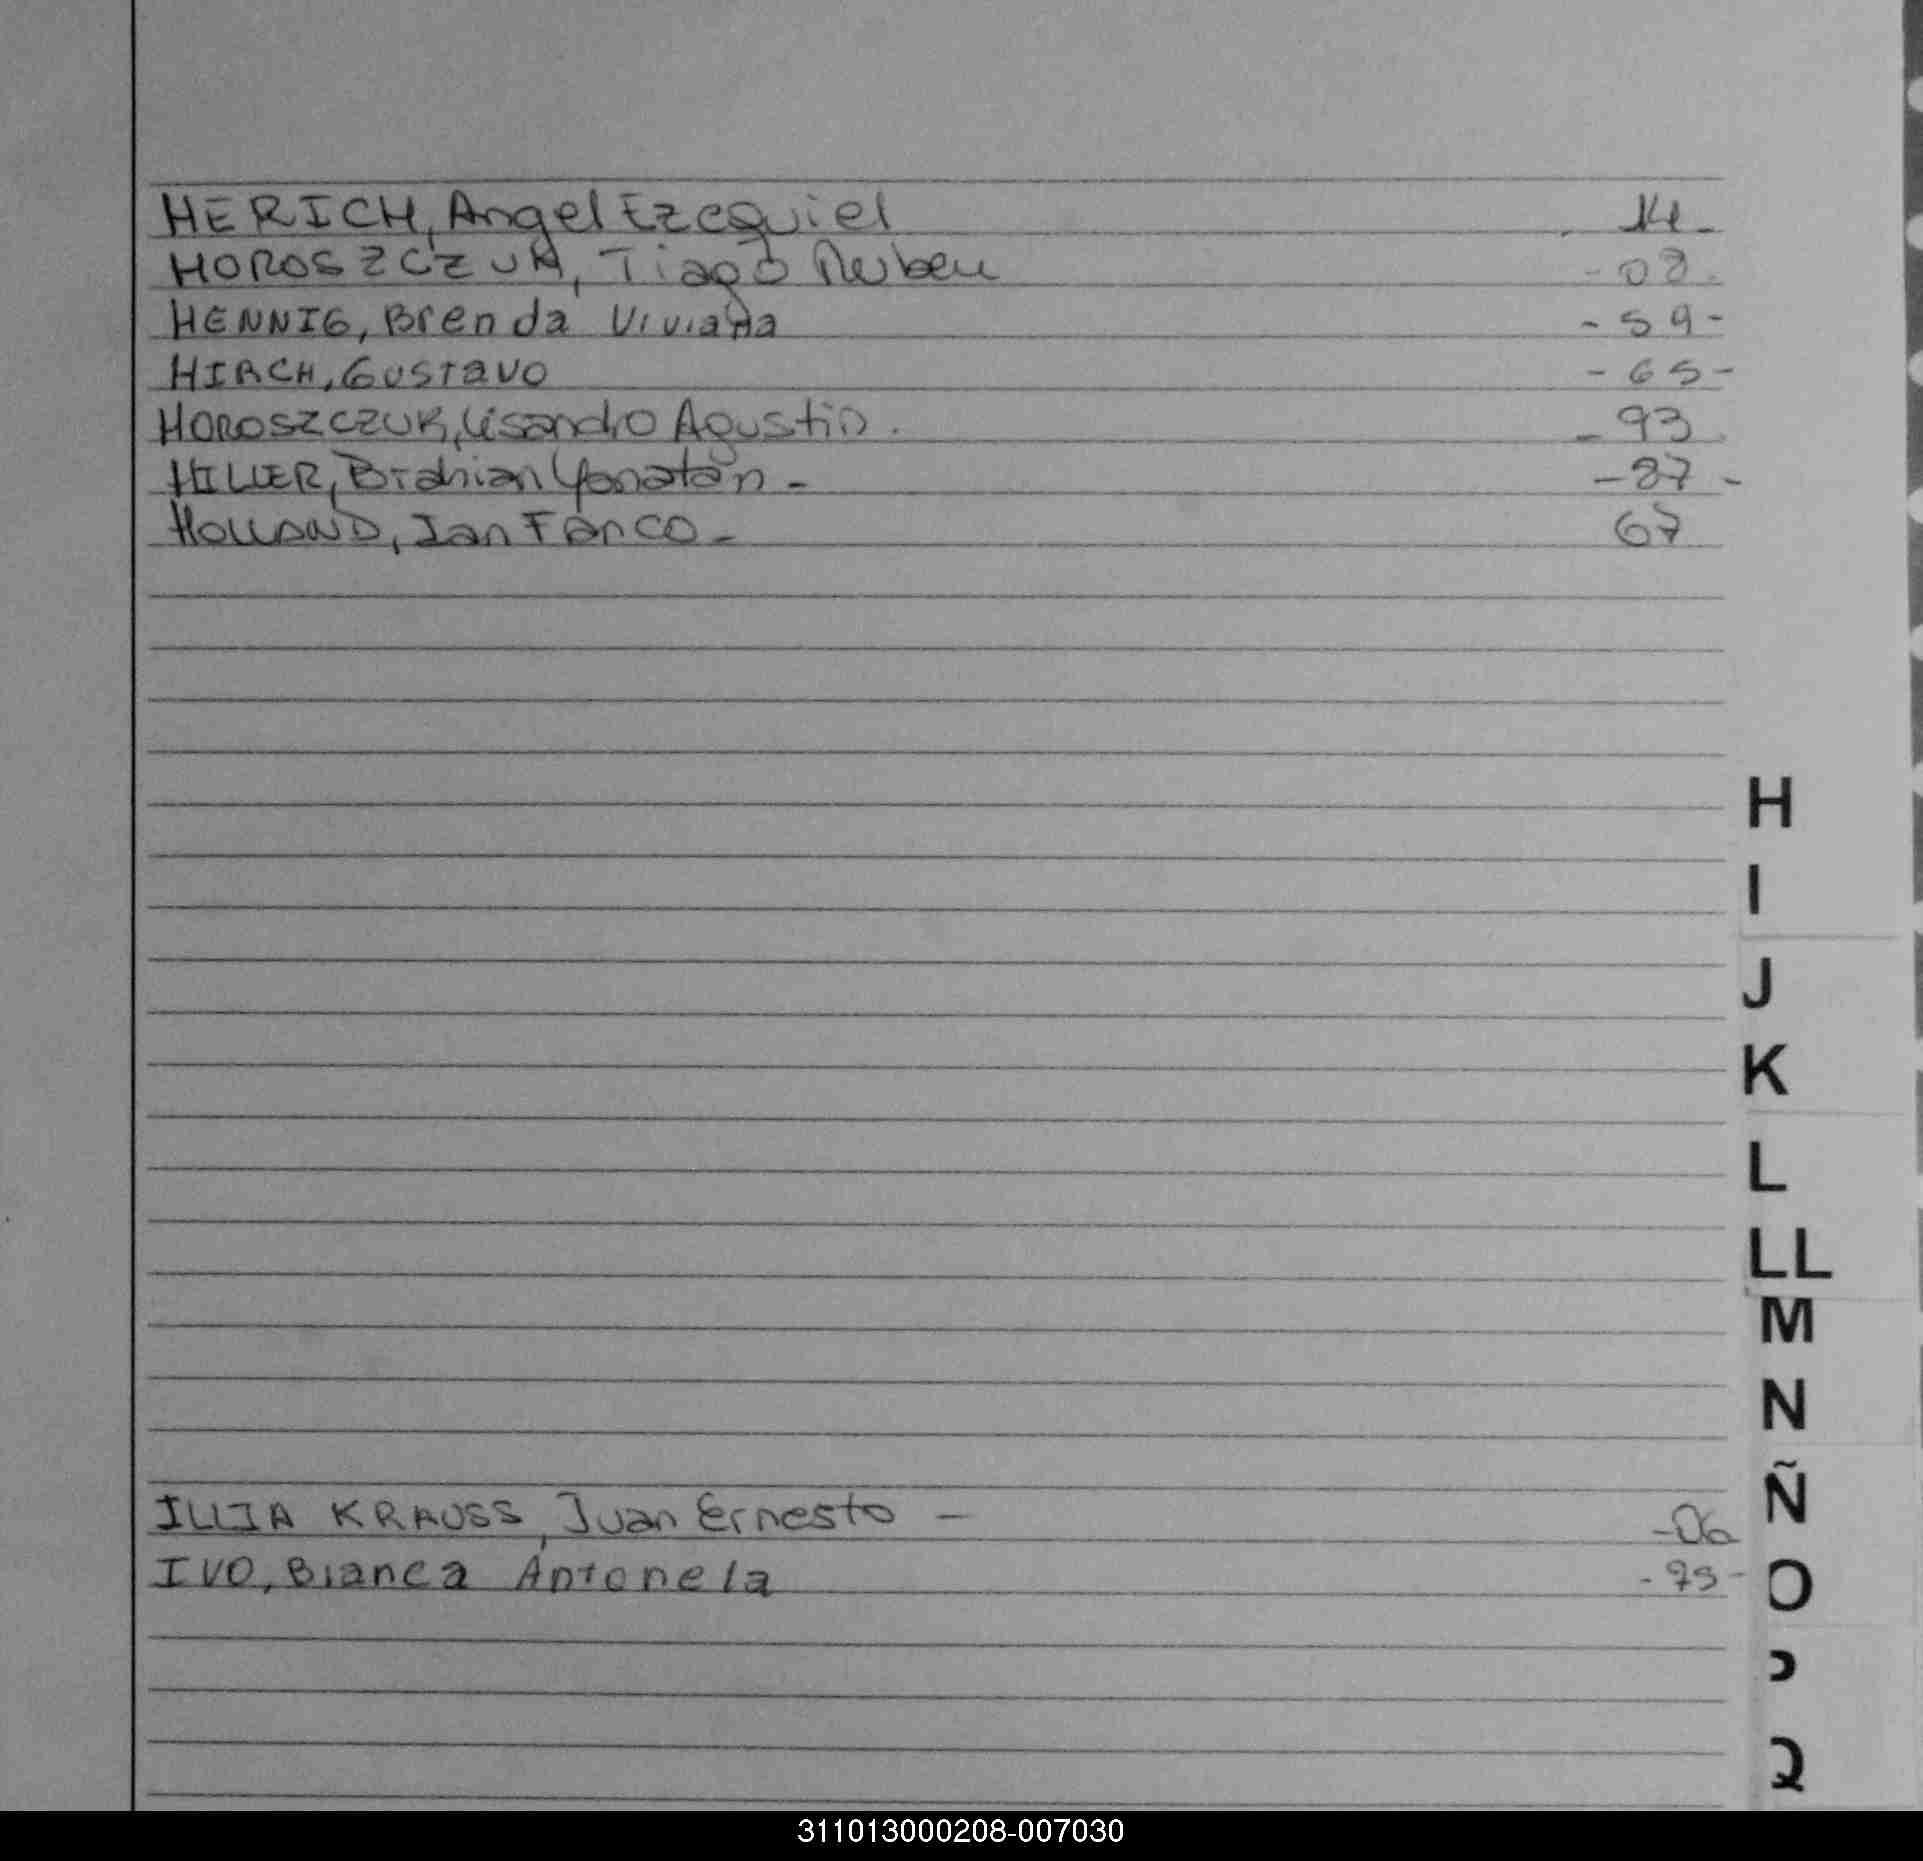 HERICH, Angel Ezequiel 14-
HOROSZCZUK, Tiago Ruben -08.
HENNIG, Brenda Viviana -59-
HIRCH, Gustavo -65-
HOROSZCZUK, Lisandro Agustin. -93.
HILLER, Brahian Yonatan- -87-
HOLLAND, Ian Franco- 67
H
I
J
K
L
LL
M
N
Ñ
ILLIA KRAUSS, Juan Ernesto - -06
IVO, Bianca Antonela -75-
O
P
Q
311013000208-007030